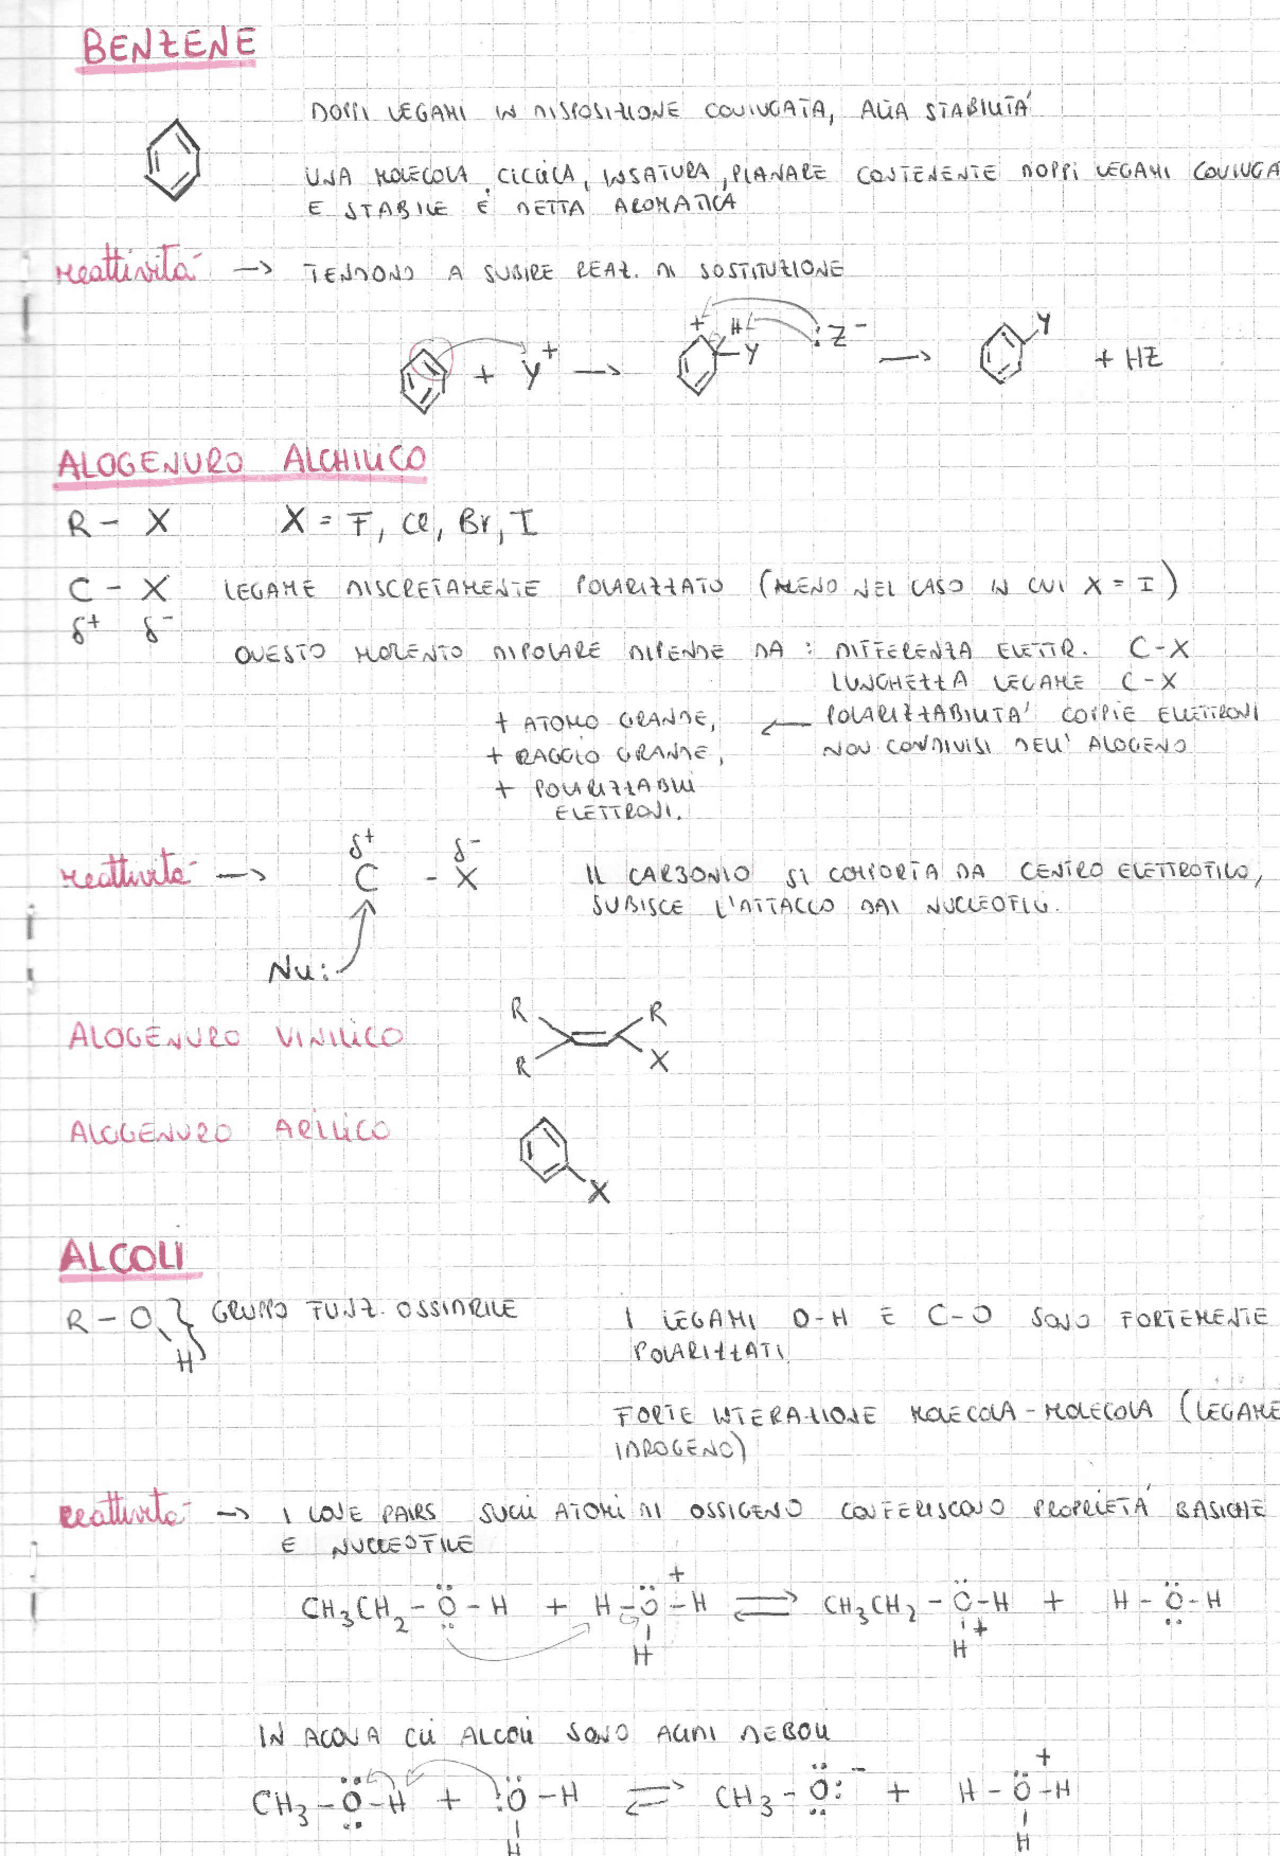 BENZENE
DOPPI LEGAMI IN DISPOSIZIONE CONIUGATA, ALTA STABILITÀ
UNA MOLECOLA CICLICA, INSATURA, PLANARE CONTENENTE DOPPI LEGAMI CONIUGA
E STABILE È DETTA AROMATICA
reattività → TENDONO A SUBIRE REAZ. DI SOSTITUZIONE
+ Y⁺ → + H Y :Z⁻ → Y + HZ
ALOGENURO ALCHILICO
R - X X = F, Cl, Br, I
C - X LEGAME DISCRETAMENTE POLARIZZATO (MENO NEL CASO IN CUI X = I)
δ⁺ δ⁻
QUESTO MOMENTO DIPOLARE DIPENDE DA : DIFFERENZA ELETTR. C-X
LUNGHEZZA LEGAME C-X
+ ATOMO GRANDE, ← POLARIZZABILITÀ COPPIE ELETTRONI
+ RAGGIO GRANDE, NON CONDIVISI DELL' ALOGENO
+ POLARIZZABILI
ELETTRONI.
δ⁺ δ⁻
reattività → C - X IL CARBONIO SI COMPORTA DA CENTRO ELETTROFILO,
SUBISCE L'ATTACCO DAI NUCLEOFILI.
Nu:
ALOGENURO VINILICO R R
R X
ALOGENURO ARILICO
X
ALCOLI
R - O GRUPPO FUNZ. OSSIDRILE I LEGAMI O-H E C-O SONO FORTEMENTE
H POLARIZZATI
FORTE INTERAZIONE MOLECOLA-MOLECOLA (LEGAME
IDROGENO)
reattività → I LONE PAIRS SUGLI ATOMI DI OSSIGENO CONFERISCONO PROPRIETÀ BASICHE
E NUCLEOFILE
+
CH₃CH₂ - Ö - H + H - Ö - H ⇌ CH₃CH₂ - Ö - H + H - Ö - H
H H +
IN ACQUA GLI ALCOLI SONO ACIDI DEBOLI
+
CH₃ - Ö - H + :Ö - H ⇌ CH₃ - Ö:⁻ + H - Ö - H
H H